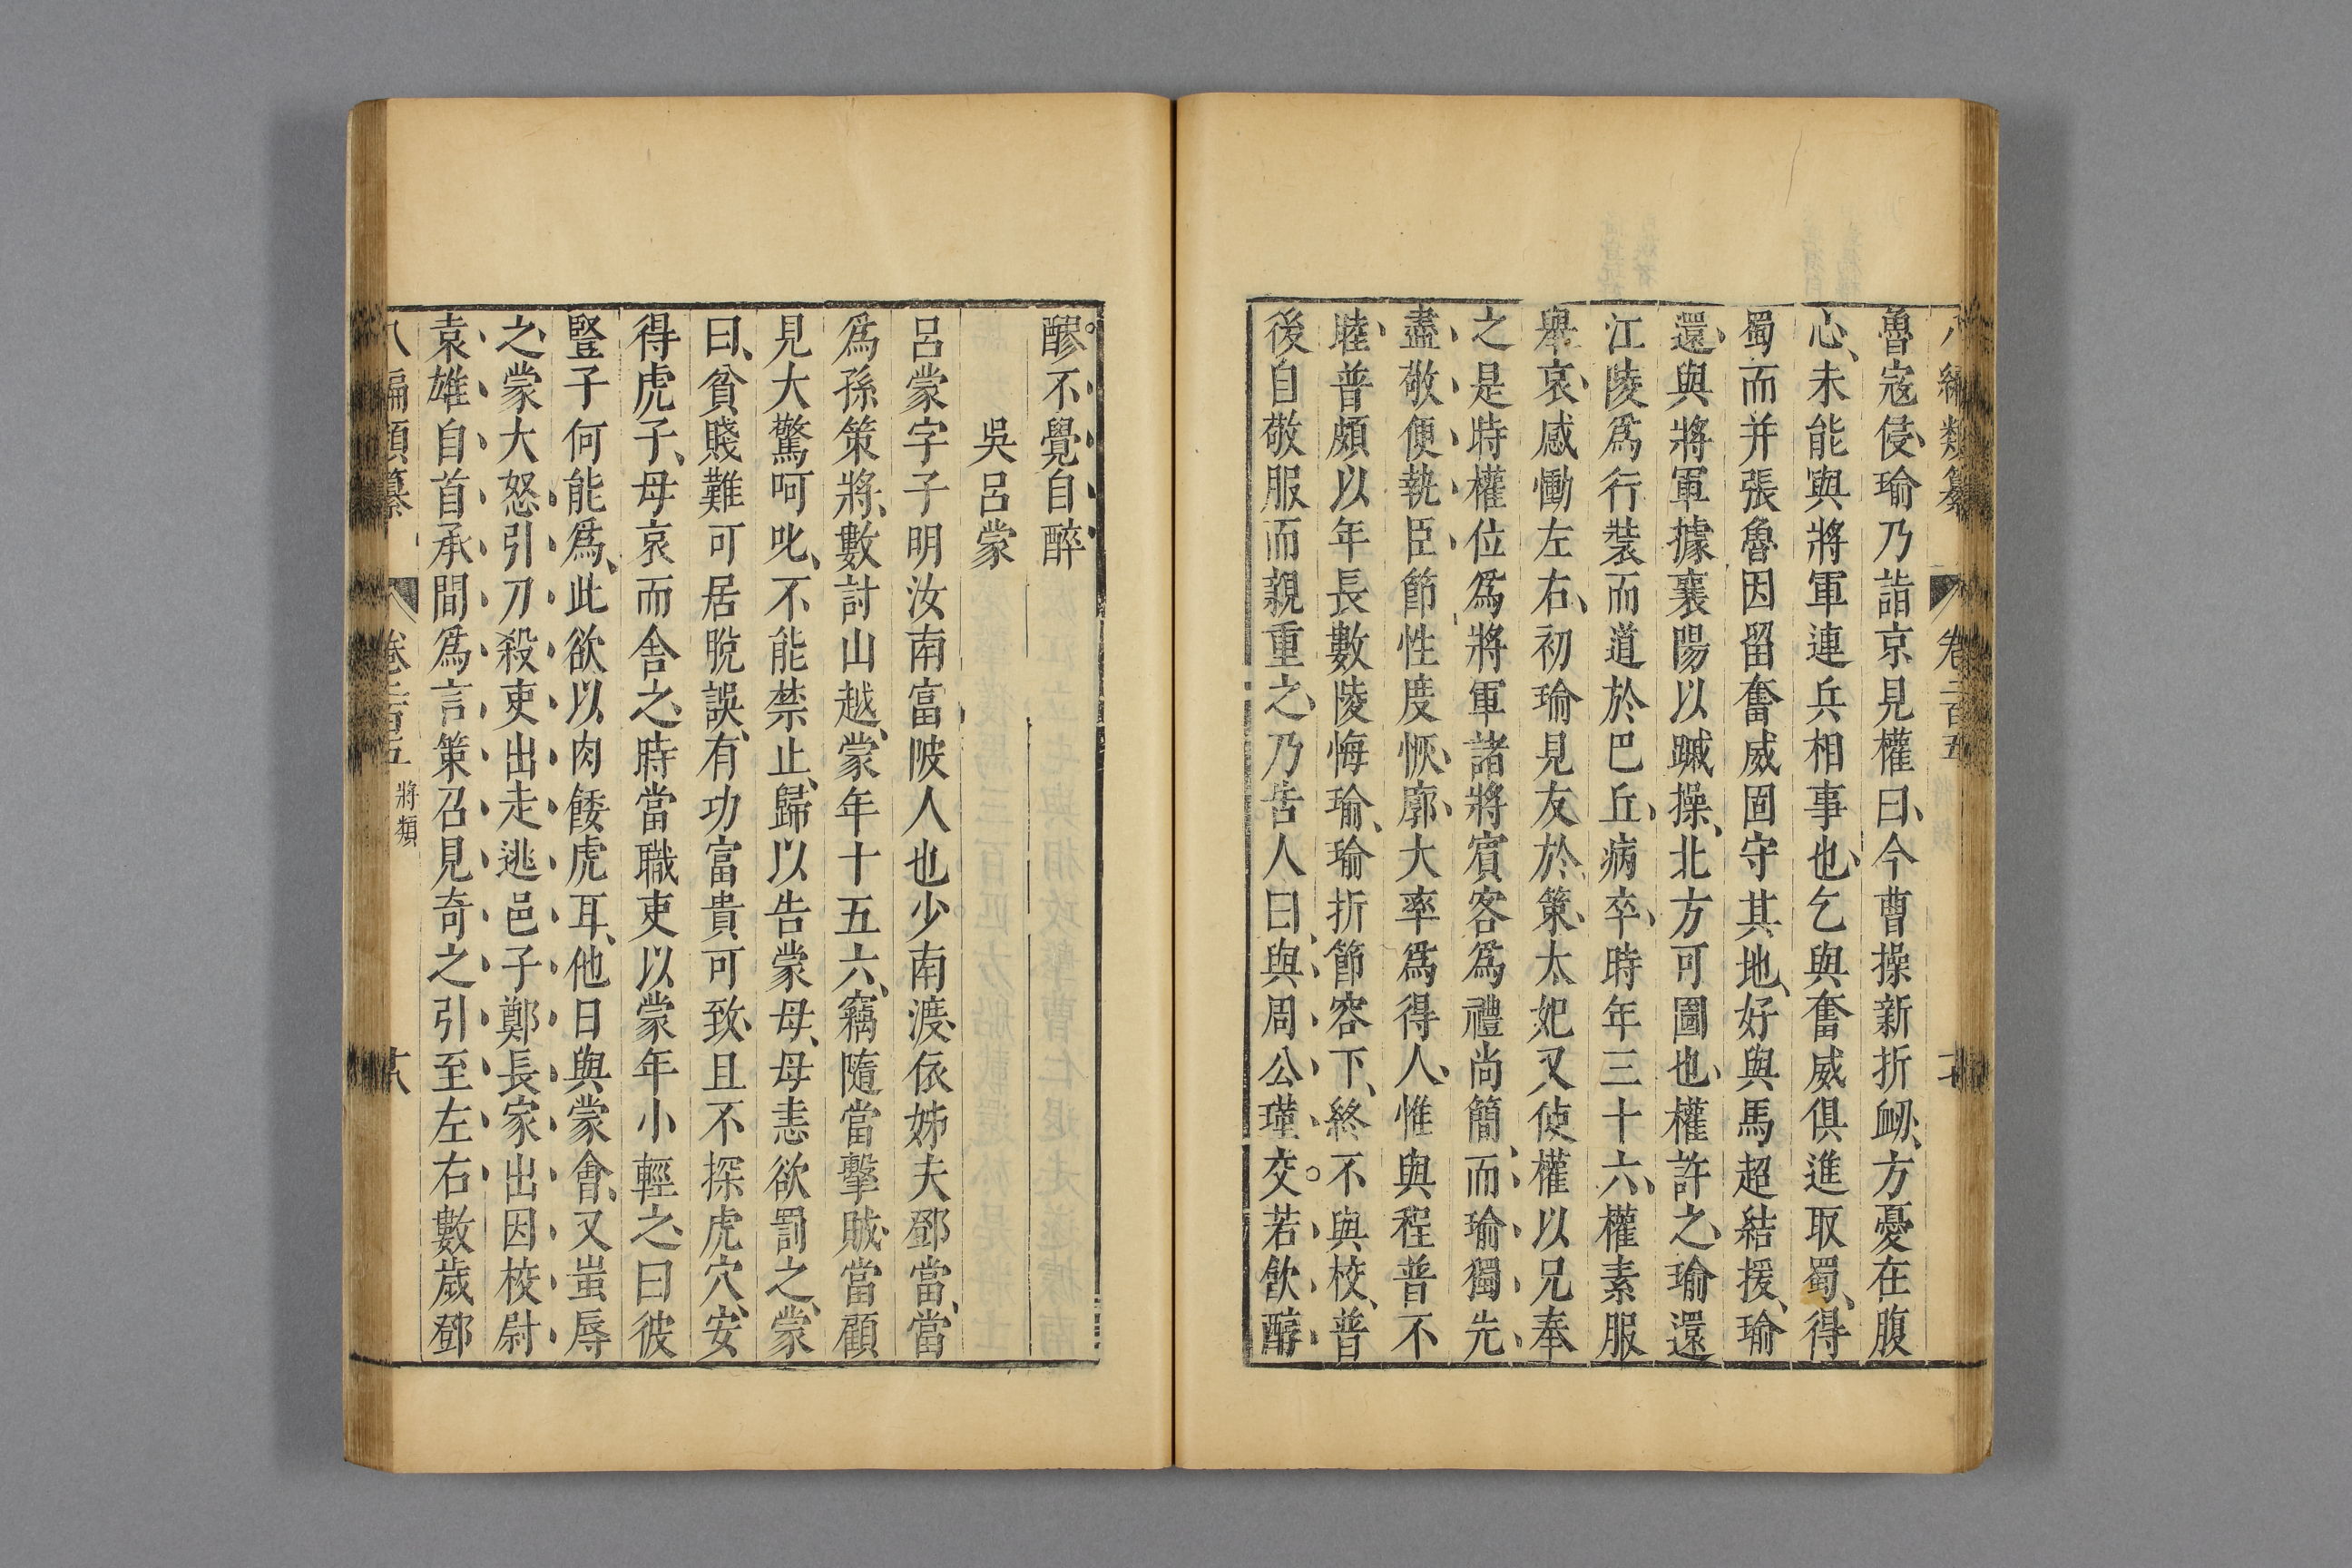 八編類纂 卷二百五
魯寇侵瑜乃詣京見權曰今曹操新折衂方憂在腹
心未能與將軍連兵相事也乞與奮威俱進取蜀得
蜀而并張魯因留奮威固守其地好與馬超結援瑜
還與將軍據襄陽以蹴操北方可圖也權許之瑜還
江陵爲行裝而道於巴丘病卒時年三十六權素服
舉哀感慟左右初瑜見友於策太妃又使權以兄奉
之是時權位爲將軍諸將賓客爲禮尚簡而瑜獨先
盡敬便執臣節性度恢廓大率爲得人惟與程普不
睦普頗以年長數陵悔瑜瑜折節容下終不與校普
後自敬服而親重之乃告人曰與周公瑾交若飲醇
醪不覺自醉
吳呂蒙
呂蒙字子明汝南富陂人也少南渡依姊夫鄧當當
爲孫策將數討山越蒙年十五六竊隨當擊賊當顧
見大驚呵叱不能禁止歸以告蒙母母恚欲罰之蒙
曰貧賤難可居脫誤有功富貴可致且不探虎穴安
得虎子母哀而舍之時當職吏以蒙年小輕之曰彼
豎子何能爲此欲以肉餧虎耳他日與蒙會又蚩辱
之蒙大怒引刀殺吏出走逃邑子鄭長家出因校尉
袁雄自首承間爲言策召見奇之引至左右數歲鄧
八編類纂 卷二百五 將類 十八